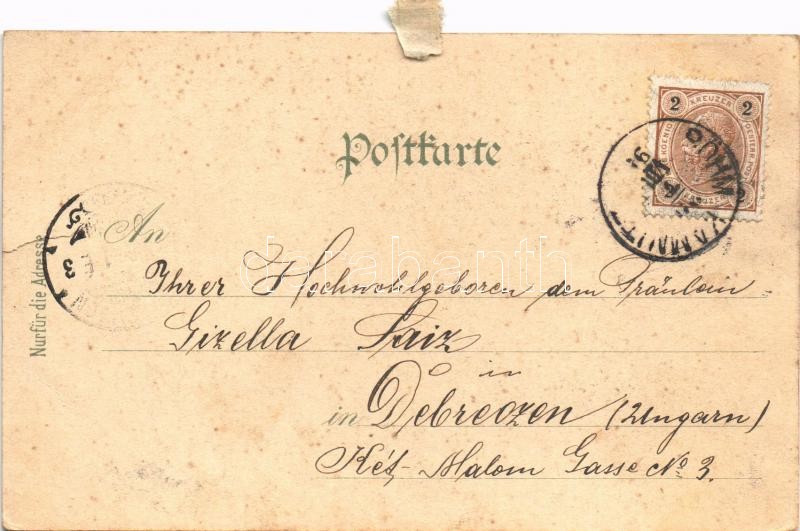 Postkarte
2 KREUZER 2
BÖHM.
KAMNITZ
An
Nur für die Adresse
Ihrer Hochwohlgeboren dem Fräulein
Gizella Saiz
in
in Debreczen (Ungarn)
Két-Malom Gasse No 3.
darabanth